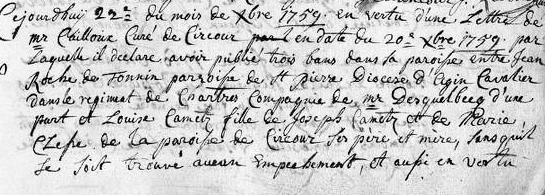 Cejourdhuy 22e du mois de Xbre 1759 en vertu d'une Lettre de
mr Chilloux Curé de Circour en date du 20e Xbre 1759 par
Laquelle il declare avoir publié trois bans dans sa paroise entre Jean
Roche de Tonnin parroise de St Pierre Diocese d'Agin Cavalier
dans le regiment de Chartres Compagnie de mr Desquelbecq d'une
part et Louise Cametz fille de Joseph Cametz et de Marie
de la paroise de Circour Ses père et mere, sans quil
se soit trouvé aucun Empechement, et aussi en vertu